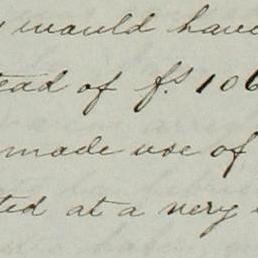 would have
of f.s 106
made use of
at a very